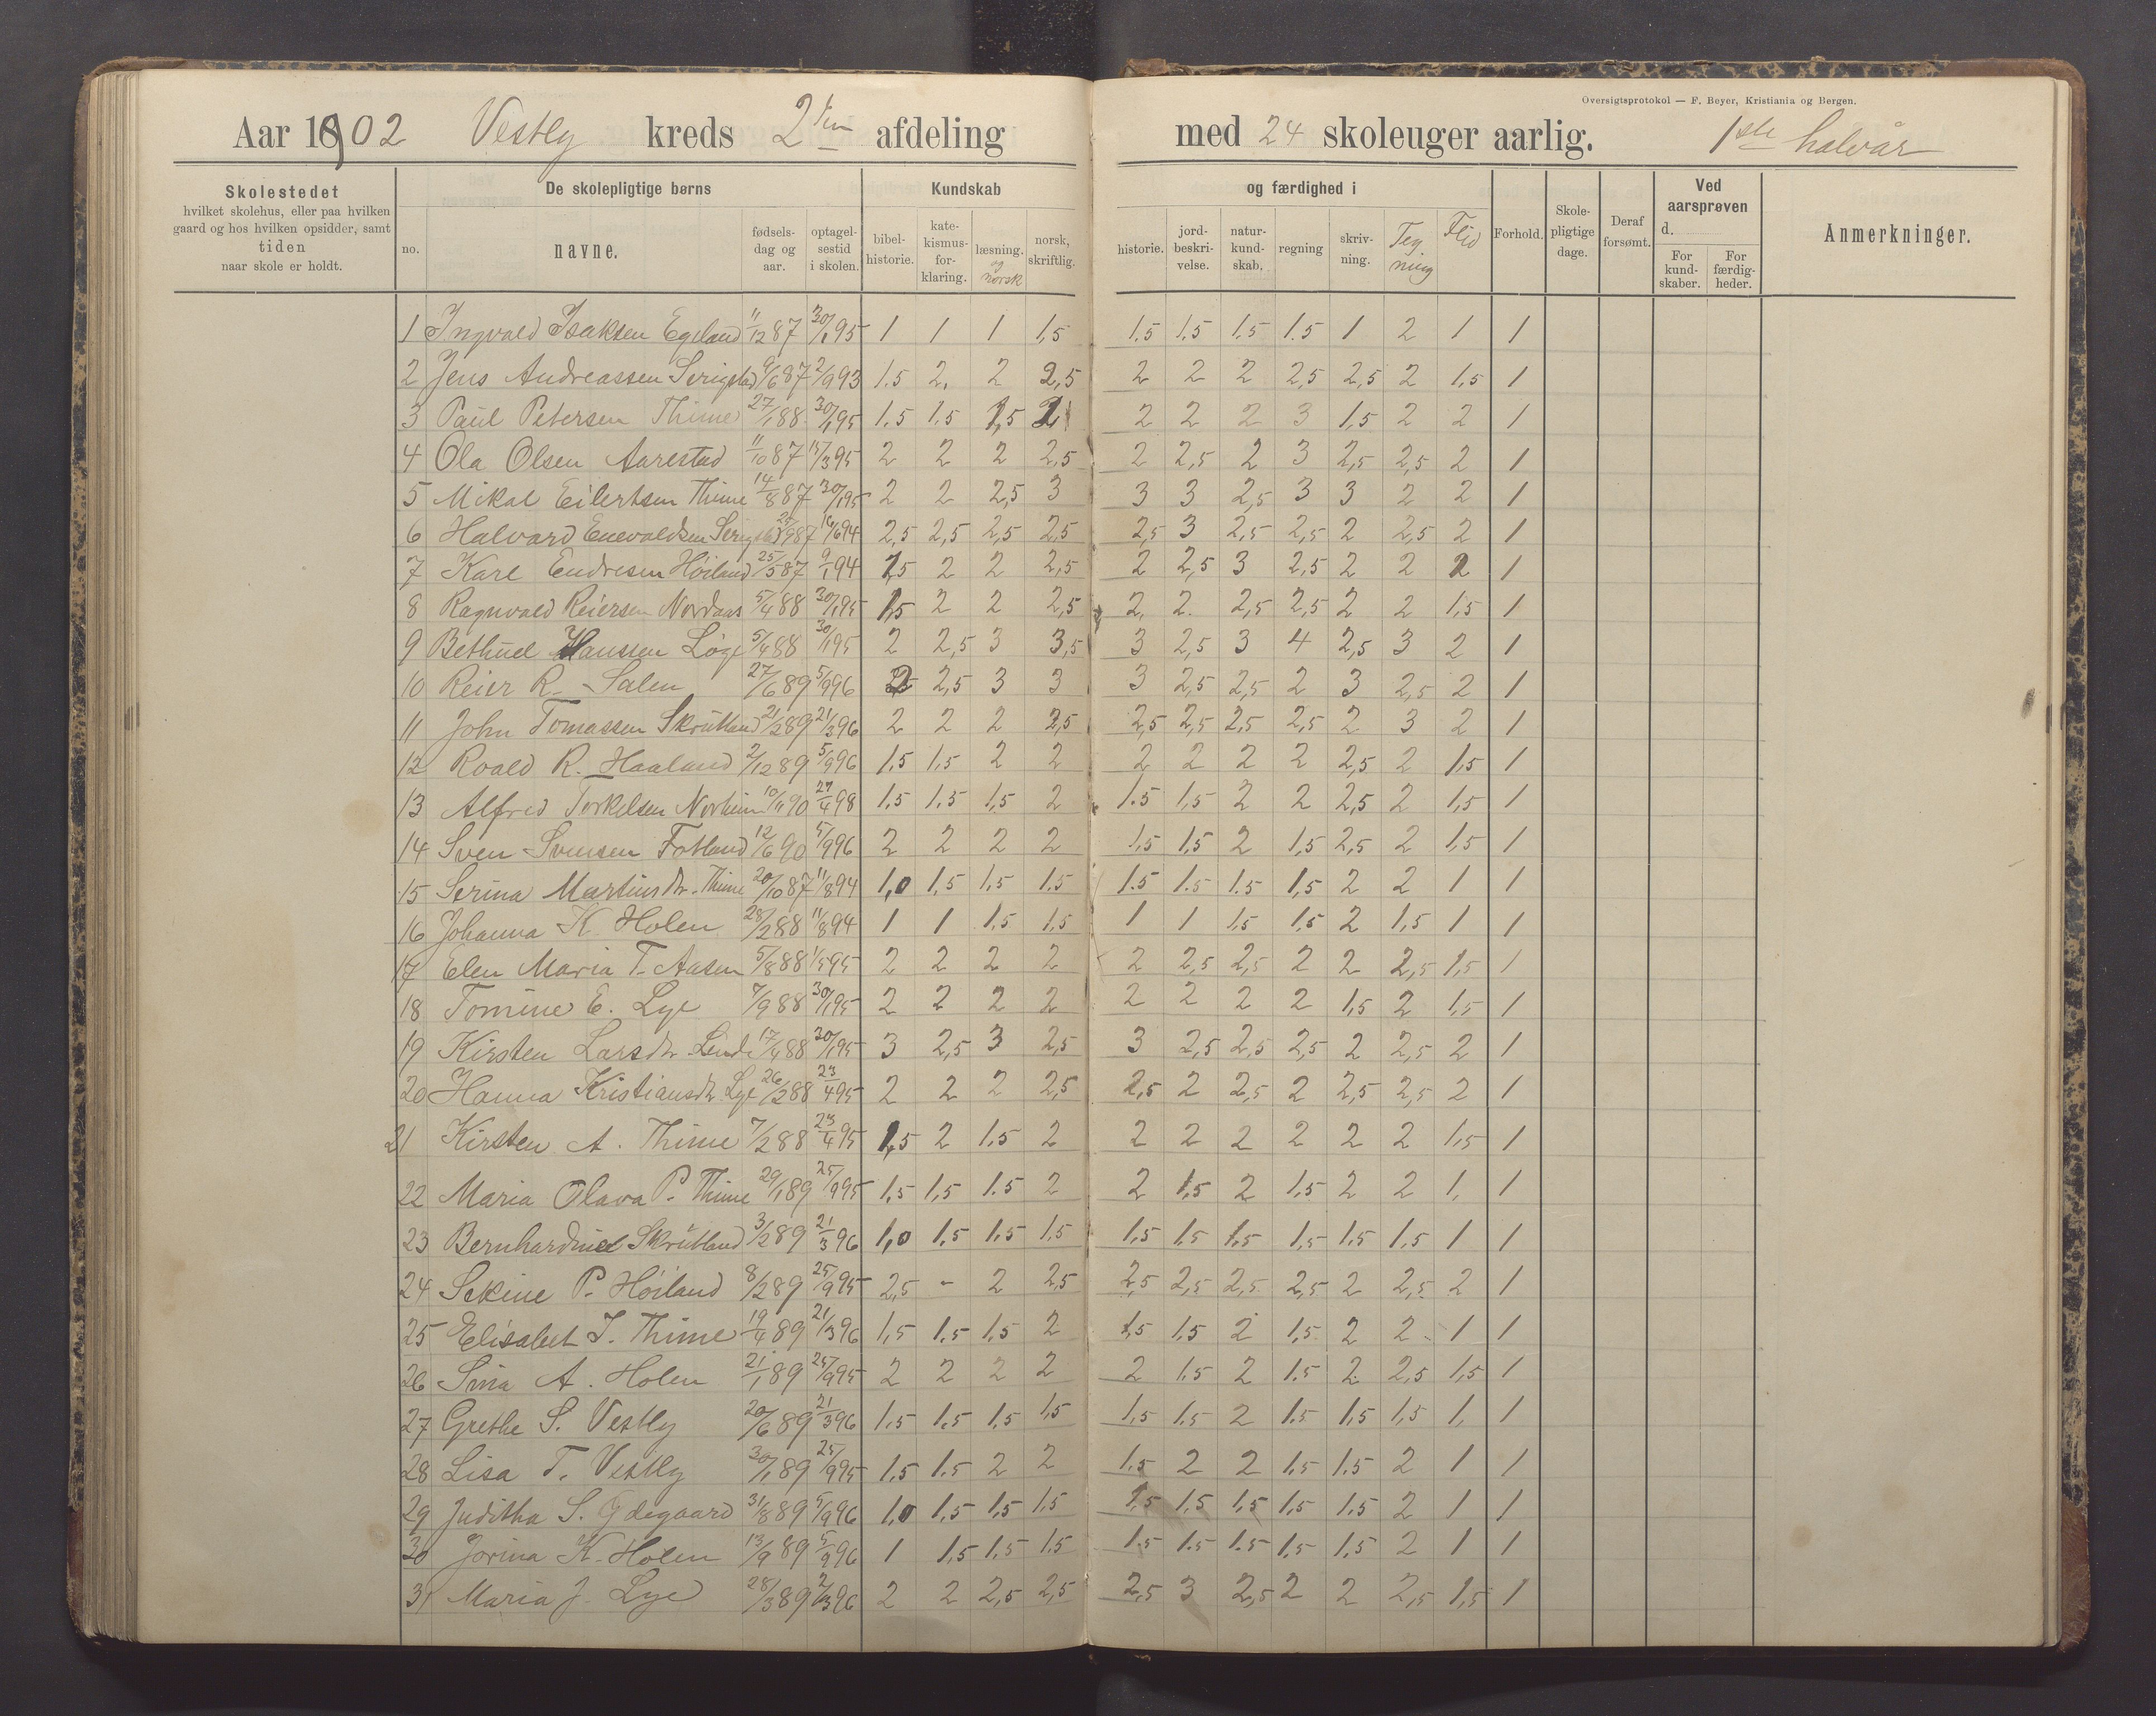 Oversigtsprotokol — F. Beyer, Kristiania og Bergen.
Aar 1902 Vestly kreds 2den afdeling med 24 skoleuger aarlig. 1ste halvår
Skolestedet hvilket skolehus, eller paa hvilken gaard og hos hvilken opsidder, samt tiden naar skole er holdt.
De skolepligtige børns
no. navne. fødsels-dag og aar. optagel-sestid i skolen.
Kundskab og færdighed i
bibel-historie. kate-kismus-for-klaring. læsning. og norsk norsk, skriftlig. historie. jord-beskri-velse. natur-kund-skab. regning skriv-ning. Teg ning Flid Forhold. Skole-pligtige dage. Deraf forsømt.
Ved aarsprøven d.
For kund-skaber. For færdig-heder.
Anmerkninger.
1 Ingvald Isaksen Egeland 11/12 87 30/1 95 1 1 1 1,5 1.5 1.5 1.5 1.5 1 2 1 1
2 Jens Andreassen Serigstad 9/6 87 2/9 93 1.5 2. 2 2,5 2 2 2 2,5 2,5 2 1,5 1
3 Paul Petersen Thime 27/1 88 30/1 95 1.5 1.5 1,5 2 2 2 3 1,5 2 2 1
4 Ola Olsen Aarestad 11/10 87 15/3 95 2 2 2 2,5 2 2,5 2 3 2,5 2,5 2 1
5 Mikal Eilertsen Thime 14/8 87 30/1 95 2 2 2,5 3 3 3 2,5 3 3 2 2 1
6 Halvard Enevaldsen 2,5 2,5 2,5 2,5 2,5 3 2,5 2,5 2 2,5 2 1
7 Karl Endresen Høiland 25/5 87 9/1 94 1,5 2 2 2,5 2 2,5 3 2,5 2 2 2 1
8 Ragnvald Reiersen Nordaas 5/4 88 30/1 95 1,5 2 2 2,5 2, 2. 2,5 2,5 2 2 1,5 1
9 Bethuel Hanssen Løge 5/4 88 30/1 95 2 2,5 3 3,5 3 2,5 3 4 2,5 3 2 1
10 Reier R. Salen 27/6 89 5/9 96 2,5 3 3 3 2,5 2,5 2 3 2,5 2 1
11 John Tomassen Skrutland 21/2 89 21/3 96 2 2 2 2,5 2,5 2,5 2,5 2,5 2 3 2 1
12 Roald R. Haaland 2/12 89 5/9 96 1,5 1,5 2 2 2 2 2 2 2,5 2 1,5 1
13 Alfred Torkelsen Norheim 10/11 90 27/4 98 1,5 1,5 1,5 2 1.5 1,5 2 2 2,5 2 1,5 1
14 Sven Svensen Fotland 12/6 90 5/9 96 2 2 2 2 1,5 1,5 2 1,5 2,5 2 1,5 1
15 Serina Martinsdtr. Thime 20/10 87 11/8 94 1,0 1,5 1,5 1.5 1.5 1.5 1.5 1,5 2 2 1 1
16 Johanna K. Holen 28/2 88 11/8 94 1 1 1.5 1,5 1 1 1.5 1,5 2 1,5 1 1
17 Elen Maria T. Aasen 5/8 88 1/5 95 2 2 2 2 2 2,5 2,5 2 2 2,5 1,5 1
18 Tomine E. Lye 7/9 88 30/1 95 2 2 2 2 2 2 2 2 1,5 2 1,5 1
19 Kirsten Larsdtr. Lende 17/4 88 30/1 95 3 2,5 3 2,5 3 2,5 2,5 2,5 2 2,5 2 1
20 Hanna Kristiansdtr. Lye 26/2 88 23/4 95 2 2 2 2,5 2,5 2 2,5 2 2,5 2,5 2 1
21 Kirsten A. Thime 7/2 88 23/4 95 1,5 2 1.5 2 2 2 2 2 2 2 1,5 1
22 Maria Olava P. Thime 29/1 89 25/9 95 1,5 1,5 1.5 2 2 1,5 2 1,5 2 2 1, 1
23 Bernhardine Skrutland 3/2 89 21/3 96 1,0 1,5 1,5 1,5 1,5 1,5 1,5 1,5 1,5 1,5 1 1
24 Sekine P. Høiland 8/2 89 25/9 95 2,5 - 2 2,5 2,5 2,5 2,5 2,5 2 2,5 2 1
25 Elisabet I. Thime 19/4 89 21/3 96 1,5 1.5 1,5 2 1,5 1,5 2 1,5 2 2 1 1
26 Sina A. Holen 21/1 89 25/9 95 2 2 2 2 2 1.5 2 1.5 2 2,5 1,5 1
27 Grethe S. Vestly 20/6 89 21/3 96 1.5 1.5 1,5 1,5 1,5 1.5 2 1.5 1,5 1,5 1, 1
28 Lisa T. Vestly 30/1 89 25/9 95 1,5 1.5 2 2 1.5 2 2 1,5 1.5 2 1 1
29 Juditha S. Ødegaard 31/8 89 5/9 96 1,0 1,5 1,5 1,5 1,5 1,5 1,5 1,5 1.5 2 1 1
30 Jorina K. Holen 13/9 89 5/9 96 1 1,5 1.5 1.5 1.5 1.5 1.5 1,5 1.5 2 1 1
31 Maria J. Lye 28/3 89 2/3 96 2 2 2,5 2,5 2,5 3 2,5 2 2 2,5 1,5 1